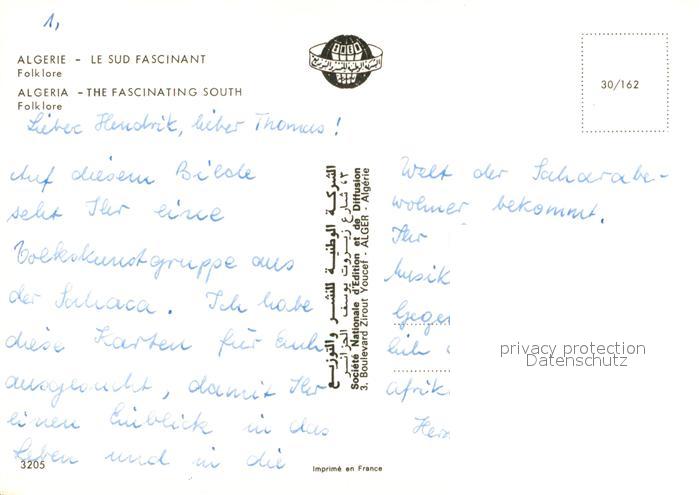 1,
ALGERIE - LE SUD FASCINANT
Folklore
ALGERIA - THE FASCINATING SOUTH
Folklore
30/162
Lieber Hendrik, lieber Thomas!
Auf diesem Bilde
seht Ihr eine
Volkskunstgruppe aus
der Sahara. Ich habe
diese Karten für Euch
ausgesucht, damit Ihr
einen Einblick in das
Leben und in die
الشركة الوطنية للنشر والتوزيع
٣، شارع زيروت يوسف الجزائر
Société Nationale d'Edition et de Diffusion
3, Boulevard Zirout Youcef - ALGER - Algérie
Welt der Saharabe-
wohner bekommt.
Ihr
Musik
Gegen
lich
afrik
Herz
privacy protection
Datenschutz
3205
Imprimé en France